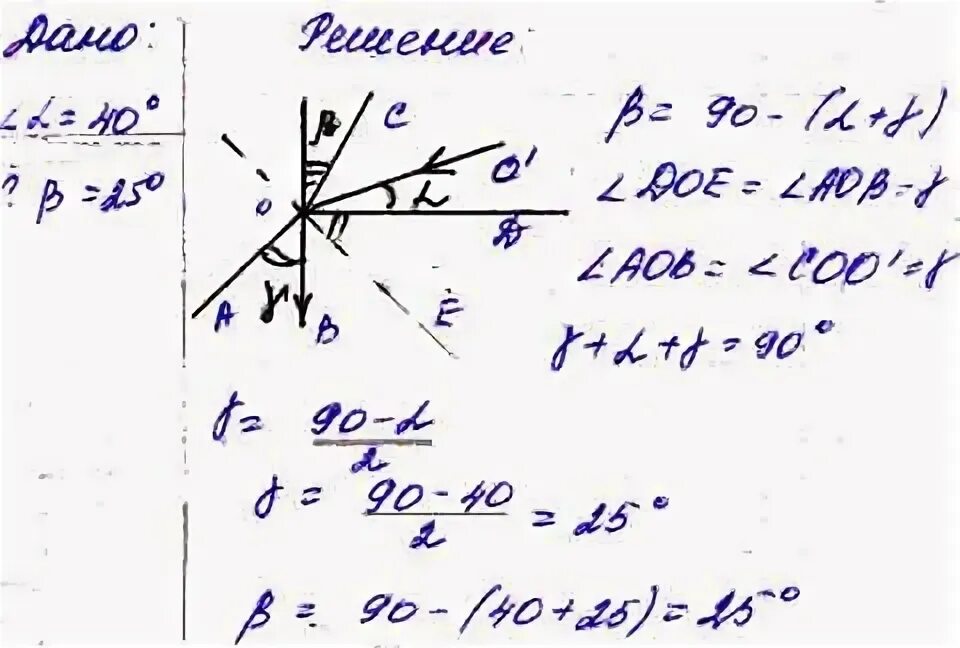 Дано:
∠α = 40°
? β = 25°
Решение
β
C
O'
α
O
D
A
γ
B
E
β = 90 - (α + γ)
∠DOE = ∠AOB = γ
∠AOB = ∠COO' = γ
γ + α + γ = 90°
γ = (90 - α) / 2
γ = (90 - 40) / 2 = 25°
β = 90 - (40 + 25) = 25°